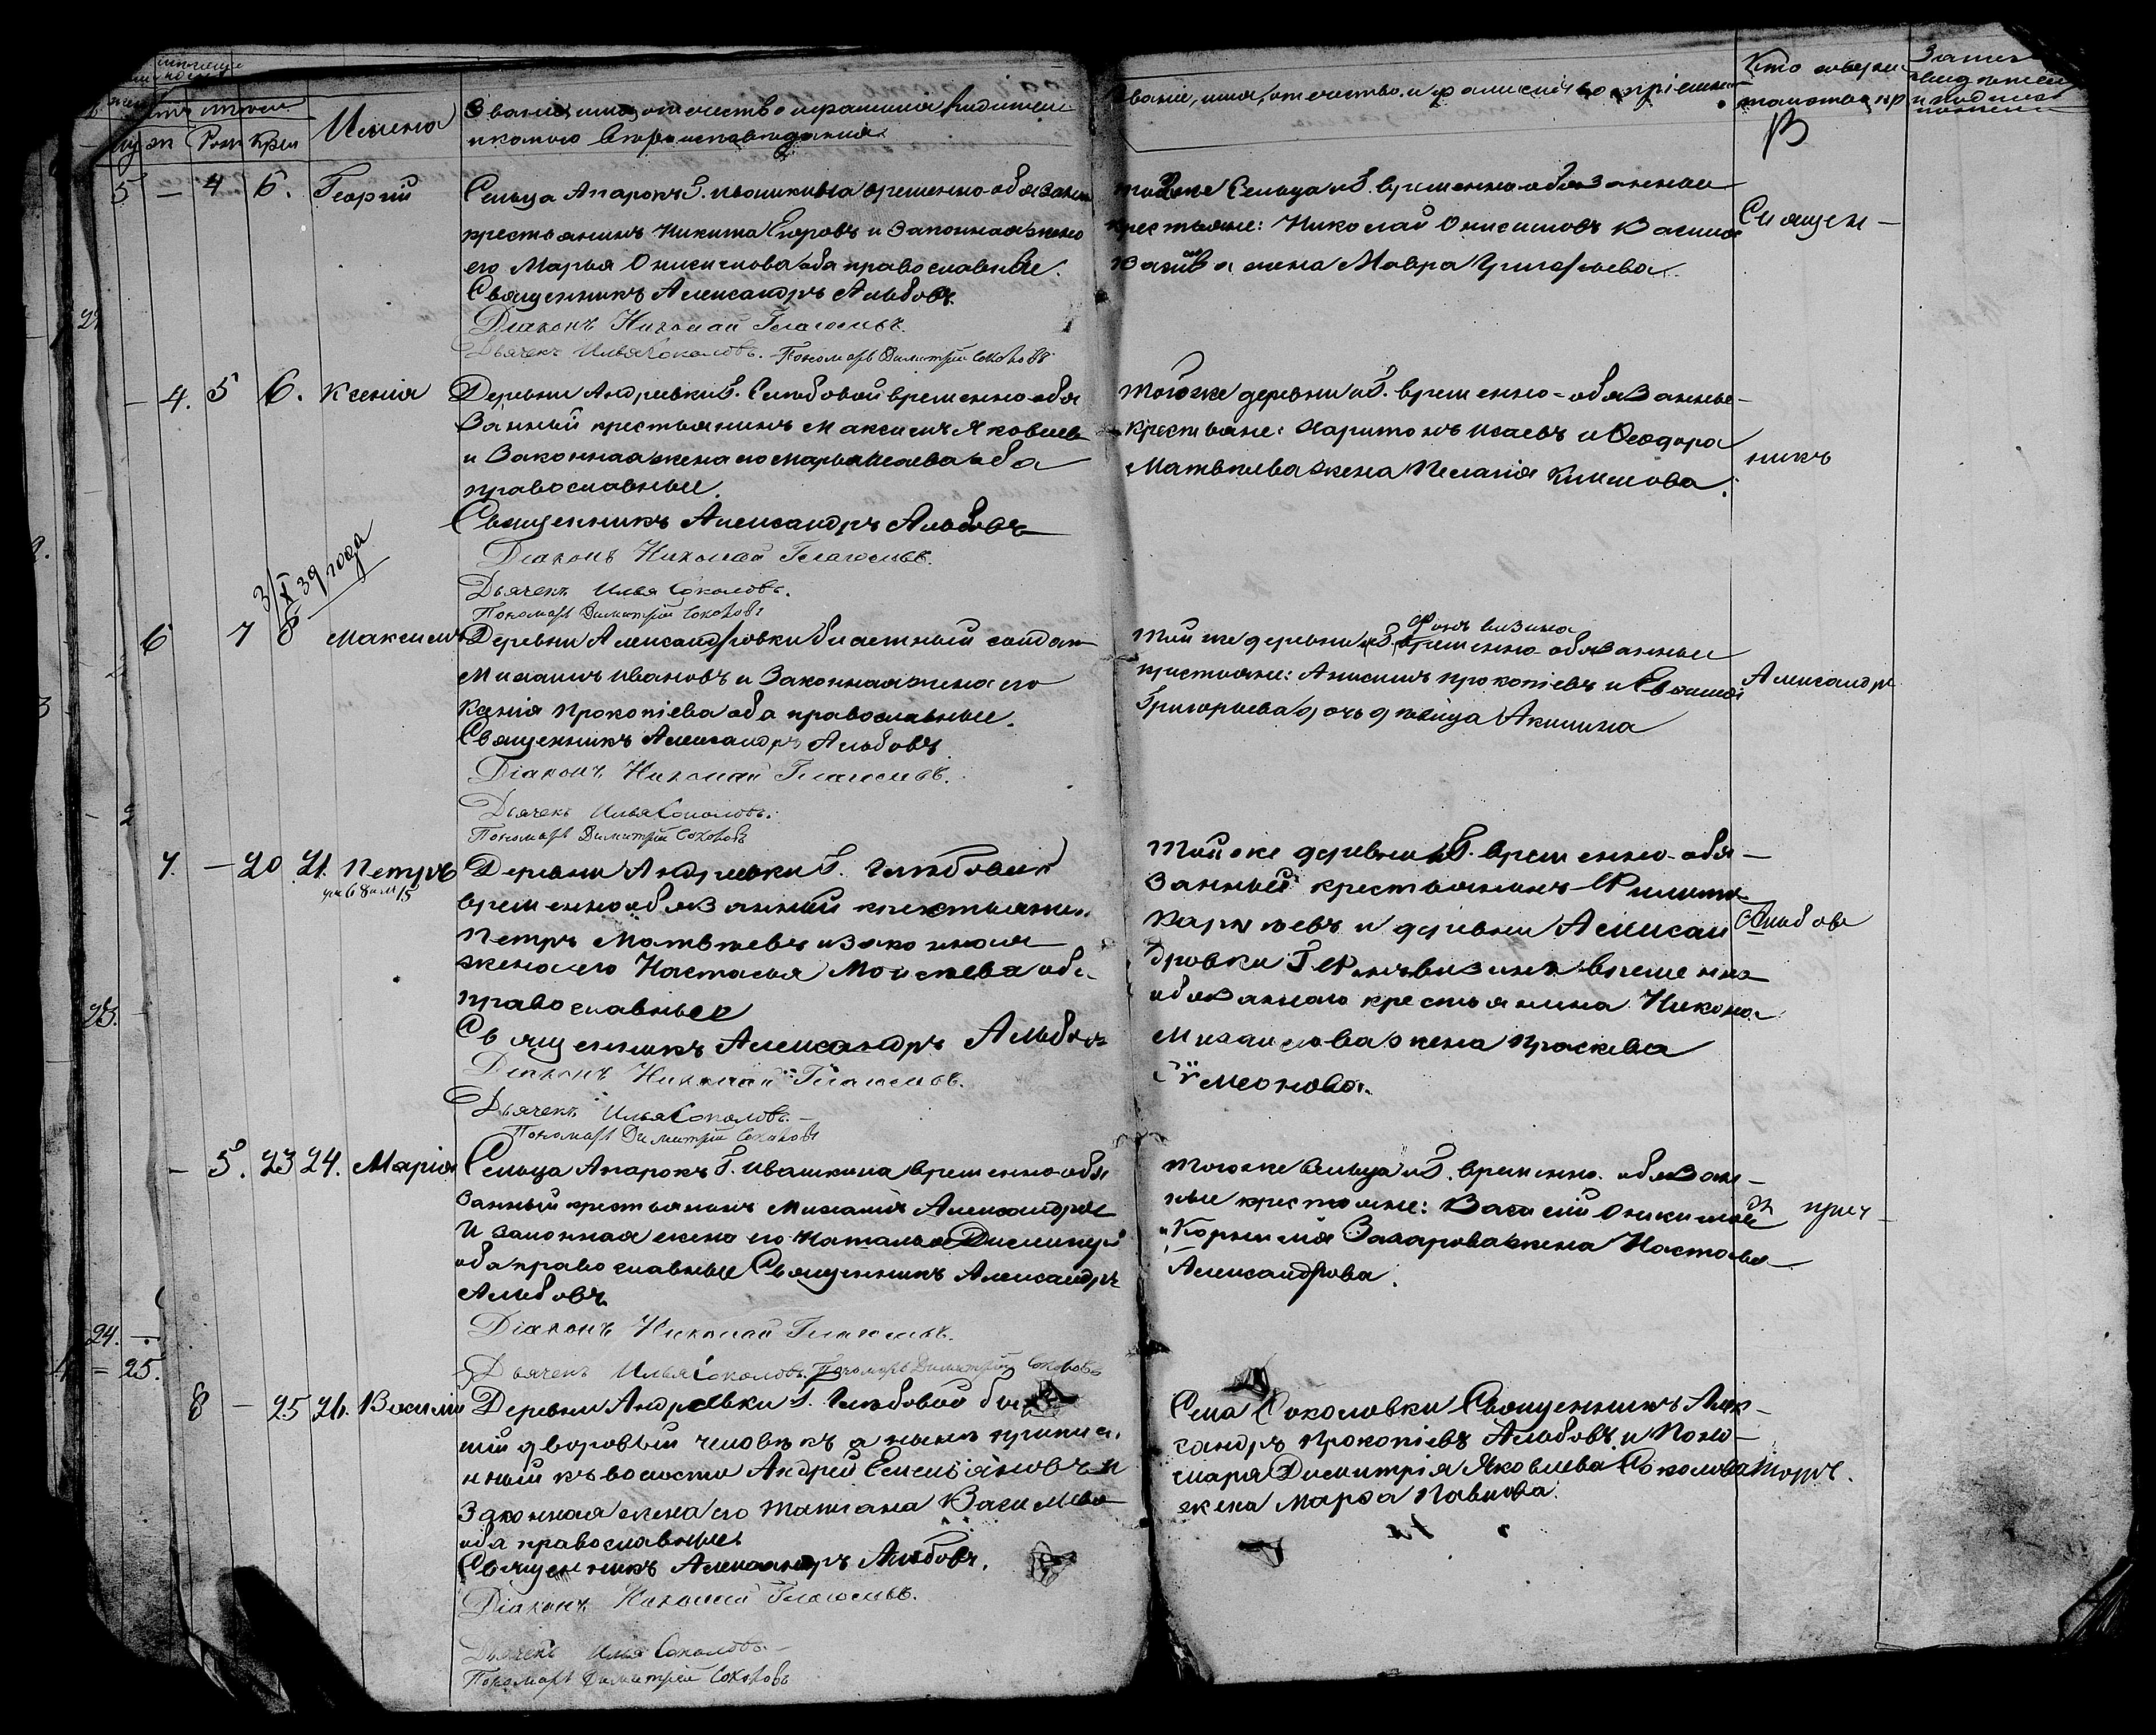 Имена
Званіе, имя, отечество и фамилія родителей
и какого вѣроисповѣданія
Званіе, имя, отечество и фамилія воспріемни
Кто соверш
таинство кр
му ж Рож Крещ
5 — 4 6. Георгій
Сельца Апарокъ Г. Ивашкина временно-обязан
крестьянинъ Никита Егоровъ и Законная жена
его Марья Онисимова оба православные.
Священникъ Александръ Альбовъ
Діаконъ Николай Глаголевъ.
Дьячекъ Илья Соколовъ. Пономарь Димитрій Соколовъ
того же Сельца и Г. временно-обязанные
крестьяне: Николай Онисимовъ
жена Мавра Григорьева
Священ-
— 4. 5 6. Ксенія
Деревни Андреевки Г. Глѣбовой временно-обя
занный крестьянинъ Максимъ Яковлевъ
и Законная жена его Марья Исаева оба
православные.
Священникъ Александръ Альбовъ
Діаконъ Николай Глаголевъ.
Дьячекъ Илья Соколовъ.
Пономарь Димитрій Соколовъ
той же деревни и Г. временно-обязанные
крестьяне: Харитонъ Исаевъ и Ѳеодора
Матвѣева жена Пелагія Климова.
никъ
3/X 39 года
6 7 8 Максимъ
Деревни Александровки билетный солдат
Михаилъ Ивановъ и Законная жена его
Ксенія Прокопіева оба православные.
Священникъ Александръ Альбовъ
Діаконъ Николай Глаголевъ.
Дьячекъ Илья Соколовъ.
Пономарь Димитрій Соколовъ
Фонъ Визина
той же деревни и Г. временно-обязанные
крестьяне: Анисимъ Прокопіевъ и
Григорьева дочь дѣвица Акилина
Александръ
7. — 20 21. Петръ
Деревни Андреевки Г. Глѣбовой
временнообязанный крестьянин
Петръ Матвѣевъ и законная
жена его Настасья Моисеева оба
православные
Священникъ Александръ Альбовъ
Діаконъ Николай Глаголевъ.
Дьячекъ Илья Соколовъ.
Пономарь Димитрій Соколовъ
той же деревни и Г. временно-обя-
занный крестьянинъ Филиппъ
Карпѣевъ и деревни Алексан
дровки Г. Фонъ Визина временно
обязаннаго крестьянина Никона
Михайлова жена Праскева
Сѵмеонова.
Альбовъ
— 5. 23 24. Марія
Сельца Апарокъ Г. Ивашкина временно-обя
занный крестьянинъ Михаилъ Александровъ
и законная жена его Наталья
оба православные Священникъ Александръ
Альбовъ
Діаконъ Николай Глаголевъ.
Дьячекъ Илья Соколовъ. Пономарь Димитрій Соколовъ
того же Сельца и Г. временно-обязан-
ные крестьяне: Василій Онисимовъ
и Корнилія Захарова жена Настасья
Александрова.
съ прич-
8 — 25 26. Василій
Деревни Андреевки Г. Глѣбовой быв
шій дворовый человѣкъ а нынѣ припис
нный къ волости Андрей Емельяновъ и
Законная жена его Татіана Васильева
оба православные
Священникъ Александръ Альбовъ.
Діаконъ Николай Глаголевъ.
Дьячекъ Илья Соколовъ.
Пономарь Димитрій Соколовъ
Села Соколовки Священникъ Алек-
сандръ Прокопіевъ Альбовъ и Поно-
маря Димитрія Яковлева Соколова
жена Марѳа Павлова.
томъ.